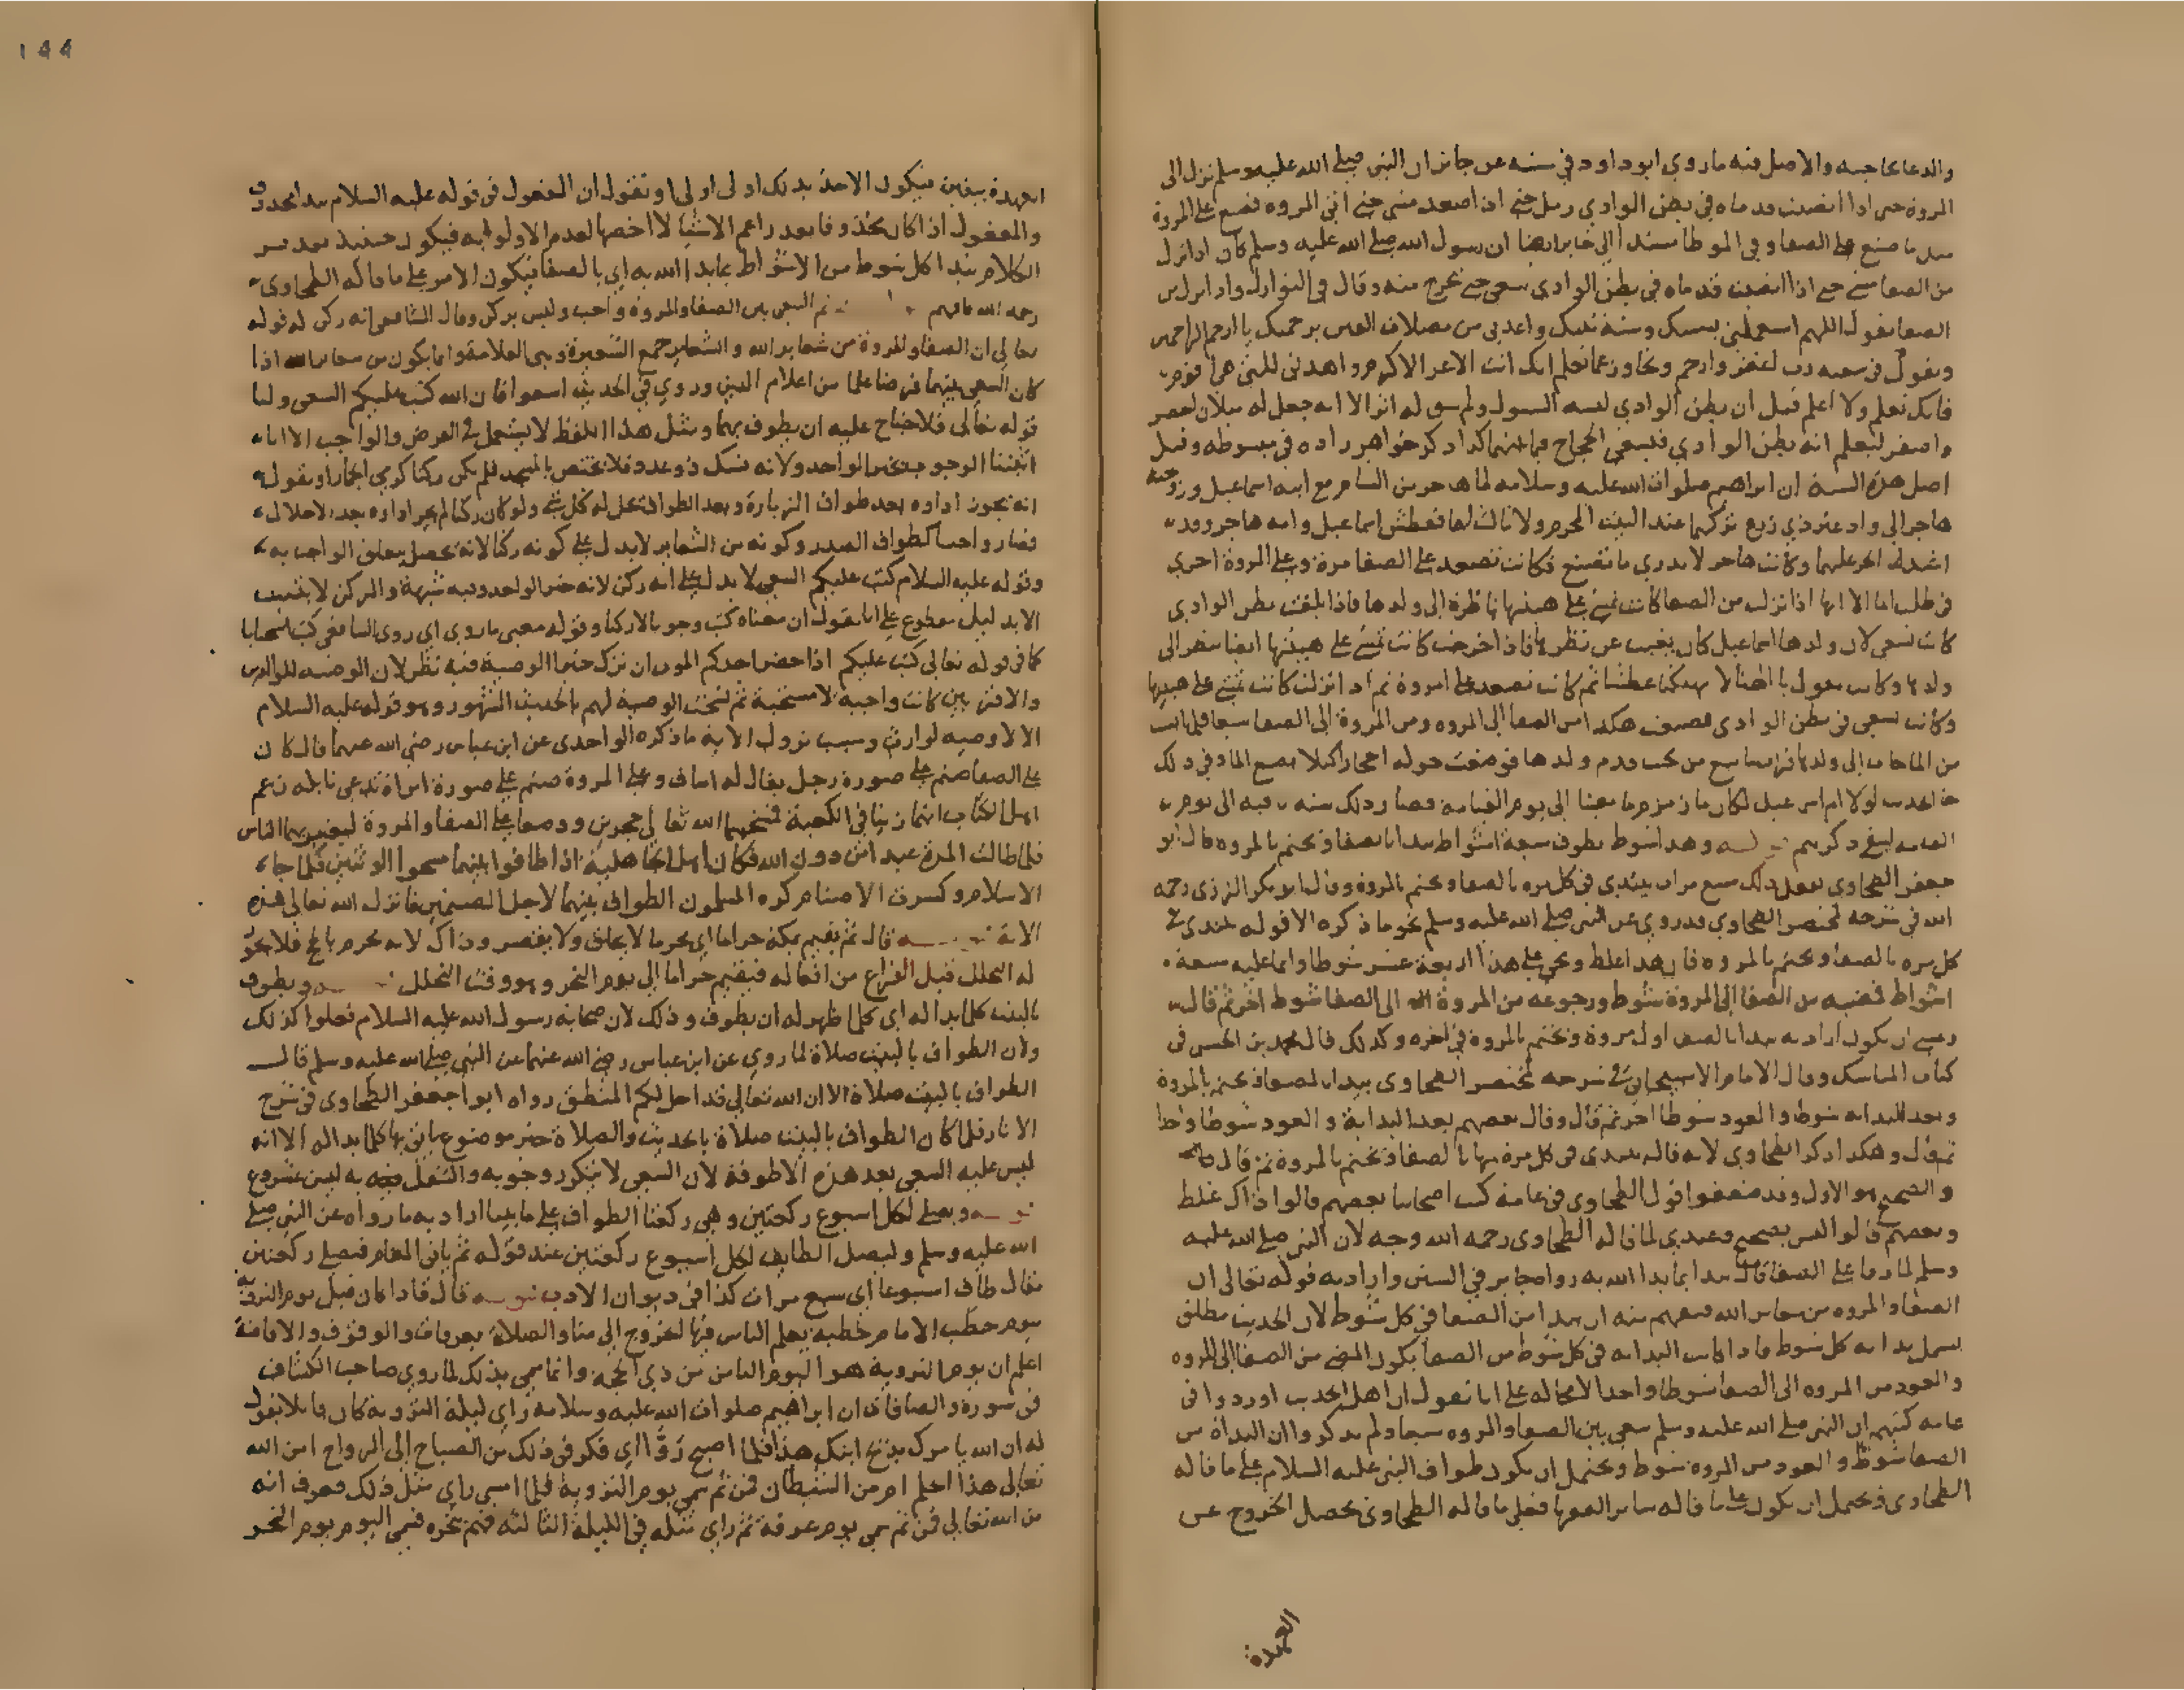 والدعا بحاجته والاصل فيه ما روي ابو داود في سننه عن جابر ان النبي صلى الله عليه وسلم نزل الى
المروة حتى اذا انصبت قدماه في بطن الوادي رمل حتى اذا صعد مشى حتى اتى المروه فصنع على المروة
مثل ما صنع على الصفا وفي الموطا مسندا الي جابر ايضا ان رسول الله صلى الله عليه وسلم كان اذا نزل
من الصفا مشى حتى اذا انصبت قدماه في بطن الوادي سعى حتى يخرج منه وقال في النوادر واذا نزل من
الصفا يقول اللهم استعملني بسنة نبيك واعذني من مضلات الفتن برحمتك يا ارحم الراحمين
ويقول في سعيه رب اغفر وارحم وتجاوز عما تعلم انك انت الاعز الاكرم واهدني للتي هي اقوم
فانك تعلم ولا اعلم قيل ان بطن الوادي السيول ولم له اثر الا انه جعل له ميلان اخضر
واصفر ليعلم انه بطن الوادي فيسعى الحجاج فيما بينهما كذا ذكر خواهر زاده في مبسوطه وقيل
اصل هذه السنة ان ابراهيم صلوات الله عليه وسلامه لما هاجر من الشام مع ابنه اسماعيل وزوجته
هاجر الى واد غير ذي زرع تركهما عند البيت المحرم ولا ثالث لهما فعطش اسماعيل وامه هاجر وقد
اشتد الحر عليهما وكانت هاجر لا تدري ما تصنع فكانت تصعد على الصفا مرة وعلى المروة اخرى
في طلب الما الا انها اذا نزلت من الصفا كانت تمشي على هينتها ناظرة الى ولدها فاذا بلغت بطن الوادي
كانت تسعى لان ولدها اسماعيل كان يغيب عن نظرها فاذا خرجت كانت تمشي على هينتها ايضا تنظر الى
ولدها وكانت تقول يا الهنا لا تهلكنا عطشا ثم كانت تصعد على المروة ثم اذا نزلت كانت تمشي على هينتها
وكانت تسعى في بطن الوادي فصنعت هكذا من الصفا الى المروه ومن المروة الى الصفا سبعا فلما
من الما جات الى ولدها فراتما ينبع من تحت قدم ولدها فوضعت حوله احجارا كيلا يضيع الما وفي ذلك
جا الحديث لولا ام اسماعيل لكان ما زمزم ما معينا الى يوم القيامة فصار ذلك سنه باقيه الى يوم
القيامه ليبقى ذكرهم قوله وهذا شوط يطوف سبعة اشواط يبدا بالصفا ويختم بالمروه قال ابو
جعفر الطحاوي يفعل ذلك سبع مرات يبتدي في كل مره بالصفا ويختم بالمروة وقال ابو بكر الرازي رحمه
الله في شرحه لمختصر الطحاوي قد روي عن النبي صلى الله عليه وسلم نحو ما ذكره الا قوله يبتدي في
كل مره بالصفا ويختم بالمروه فان هذا غلط ويجي على هذا اربعة عشر شوطا وانما عليه سبعة
اشواط فمضيه من الصفا الى المروة شوط ورجوعه من المروة الى الصفا شوط اخر ثم قال
وعسى ان يكون اراد به يبدا بالصفا اول مروة ويختم بالمروة في اخره وكذلك قال محمد بن الحسن في
كتاب المناسك وقال الامام الاسبيجاني في شرحه لمختصر الطحاوي يبدا بالصفا ويختم بالمروة
ويعد البداية شوطا والعود شوطا اخر ثم قال وقال بعضهم يعد البداية والعود شوطا واحدا
ثم قال وهكذا ذكر الطحاوي لانه قال يبتدي في كل مرة منها بالصفا ويختم بالمروة ثم قال
والصحيح هو الاول وقد ضعفوا قول الطحاوي في عامة كتب اصحابنا بعضهم قالوا ذاك غلط
وبعضهم قالوا ليس بصحيح وعندي لما قاله الطحاوي رحمه الله وجه لان النبي صلى الله عليه
وسلم لما رقا على الصفا قال نبدا بما بدا الله به رواه جابر في السنن واراد به قوله تعالى ان
الصفا والمروه من شعائر الله فيفهم منه ان يبدا من الصفا في كل شوط لان الحديث مطلق
يشمل بداية كل شوط فاذا كانت البداية في كل شوط من الصفا يكون المضي من الصفا الى المروه
والعود من المروه الى الصفا شوطا واحدا لا محالة على انا نقول ان اهل الحديث اوردوا في
عامة كتبهم ان النبي صلى الله عليه وسلم سعى بين الصفا والمروه سبعا ولم يذكروا ان البداة من
الصفا شوط والعود من المروه شوط ويحتمل ان يكون طواف النبي عليه السلام على ما قاله
الطحاوي ويحتمل ان يكون على ما قاله سائر الفقها فعلى ما قاله الطحاوي يحصل الخروج عن
العهدة
١٩٩
العهدة بيقين فيكون الاخذ بذلك اولى اولى او نقول ان المفعول في قوله عليه السلام نبدا محذوف
والمفعول اذا كان محذوفا يقدر اعم الاشيا لا اخصها لعدم الاولوية فيكون حينئذ تقدير
الكلام نبدا كل شوط من الاشواط بما بدا الله به اي بالصفا فيكون الامر على ما قاله الطحاوي
رحمه الله فافهم ثم السعي بين الصفا والمروة واجب وليس بركن وقال الشافعي انه ركن له قوله
تعالى ان الصفا والمروة من شعاير الله والشعاير جمع الشعيرة وهي العلامة وانما يكون من شعاير الله اذا
كان السعي بينهما فرضا علما من اعلام الدين وروي في الحديث اسعوا فان الله كتب عليكم السعي ولنا
قوله تعالى فلا جناح عليه ان يطوف بهما ومثل هذا اللفظ لا يستعمل في الفرض والواجب الا انا
اثبتنا الوجوب بخبر الواحد ولانه نسك ذو عدد فلا يختص بالمسجد فلم يكن ركنا كرمي الجمار او نقول
انه يجوز اداوه بعد طواف الزيارة وبعد الطواف تحل له كل شي ولو كان ركنا لم يجز اداوه بعد الاحلال
فصار واجبا كطواف الصدر وكونه من الشعاير لا يدل على كونه ركنا لانه يحصل بمطلق الواجب به
وقوله عليه السلام كتب عليكم السعي لا يدل على انه ركن لانه خبر الواحد وفيه شبهة والركن لا يثبت
الا بدليل مقطوع على انا نقول ان معناه كتب وجوبا لا ركنا وقوله معنى ما روي اي روى الشافعي كتب استحبابا
كما في قوله تعالى كتب عليكم اذا حضر احدكم الموت ان ترك خيرا الوصية فيه نظر لان الوصيه للوالدين
والاقربين كانت واجبة لا مستحبة ثم نسخت الوصية لهم بالحديث المشهور وهو قوله عليه السلام
الا لا وصيه لوارث وسبب نزول الاية ما ذكره الواحدي عن ابن عباس رضي الله عنهما قال كان
على الصفا صنم على صورة رجل يقال له اساف وعلى المروة صنم على صورة امراة تدعى نايلة زعم
اهل الكتاب انهما زنيا في الكعبة فمسخهما الله تعالى حجرين ووضعا على الصفا والمروة ليعتبر بهما الناس
فلما طالت المدة عبدا من دون الله فكان اهل الجاهلية اذا طافوا بينهما مسحوا الوثنين فلما جاء
الاسلام وكسرت الاصنام كره المسلمون الطواف بينهما لاجل الصنمين فانزل الله تعالى هذه
الاية قوله قال ثم يقيم بمكة حراما اي محرما لا يحلق ولا يقصر وذاك لانه محرم بالحج فلا يجوز
له التحلل قبل الفراغ من افعاله فيقيم حراما الى يوم النحر وهو وقت التحلل قوله ويطوف
بالبيت كلما بدا له اي كلما ظهر له ان يطوف وذلك لان صحابة رسول الله عليه السلام فعلوا كذلك
ولان الطواف بالبيت صلاة لما روي عن ابن عباس رضي الله عنهما عن النبي صلى الله عليه وسلم قال
الطواف بالبيت صلاة الا ان الله تعالى قد احل لكم المنطق رواه ابو اجعفر الطحاوي في شرح
الاثار فلما كان الطواف بالبيت صلاة بالحديث والصلاة خير موضوع ياتي بها كلما بدا له الا انه
ليس عليه السعي بعد هذه الاطوفة لان السعي لا يتكرر وجوبه والتنفل به ليس بمشروع
قوله ويصلي لكل اسبوع ركعتين وهي ركعتا الطواف على ما بينا اراد به ما رواه عن النبي صلى
الله عليه وسلم وليصل الطايف لكل اسبوع ركعتين عند قوله ثم ياتي المقام فيصلي ركعتين
يقال طاف اسبوعا اي سبع مرات كذا في ديوان الادب قوله قال فاذا كان قبل يوم التروية
بيوم خطب الامام خطبه يعلم الناس فيها الخروج الى منا والصلاة بعرفات والوقوف والافاضة
اعلم ان يوم التروية هو اليوم الثامن من ذي الحجه وانما سمي بذلك لما روي صاحب الكشاف
في سورة والصافات ان ابراهيم صلوات الله عليه وسلامه راي ليلة التروية كان قايلا يقول
له ان الله يامرك بذبح ابنك هذا فلما اصبح روا اي فكر في ذلك من الصباح الى الرواح امن الله
تعالى هذا الحلم ام من الشيطان فمن ثم سمي يوم التروية فلما امسى راي مثل ذلك فعرف انه
من الله تعالى فمن ثم سمي يوم عرفة ثم راي مثله في الليلة الثالثة فهم بنحره فسمي اليوم يوم النحر